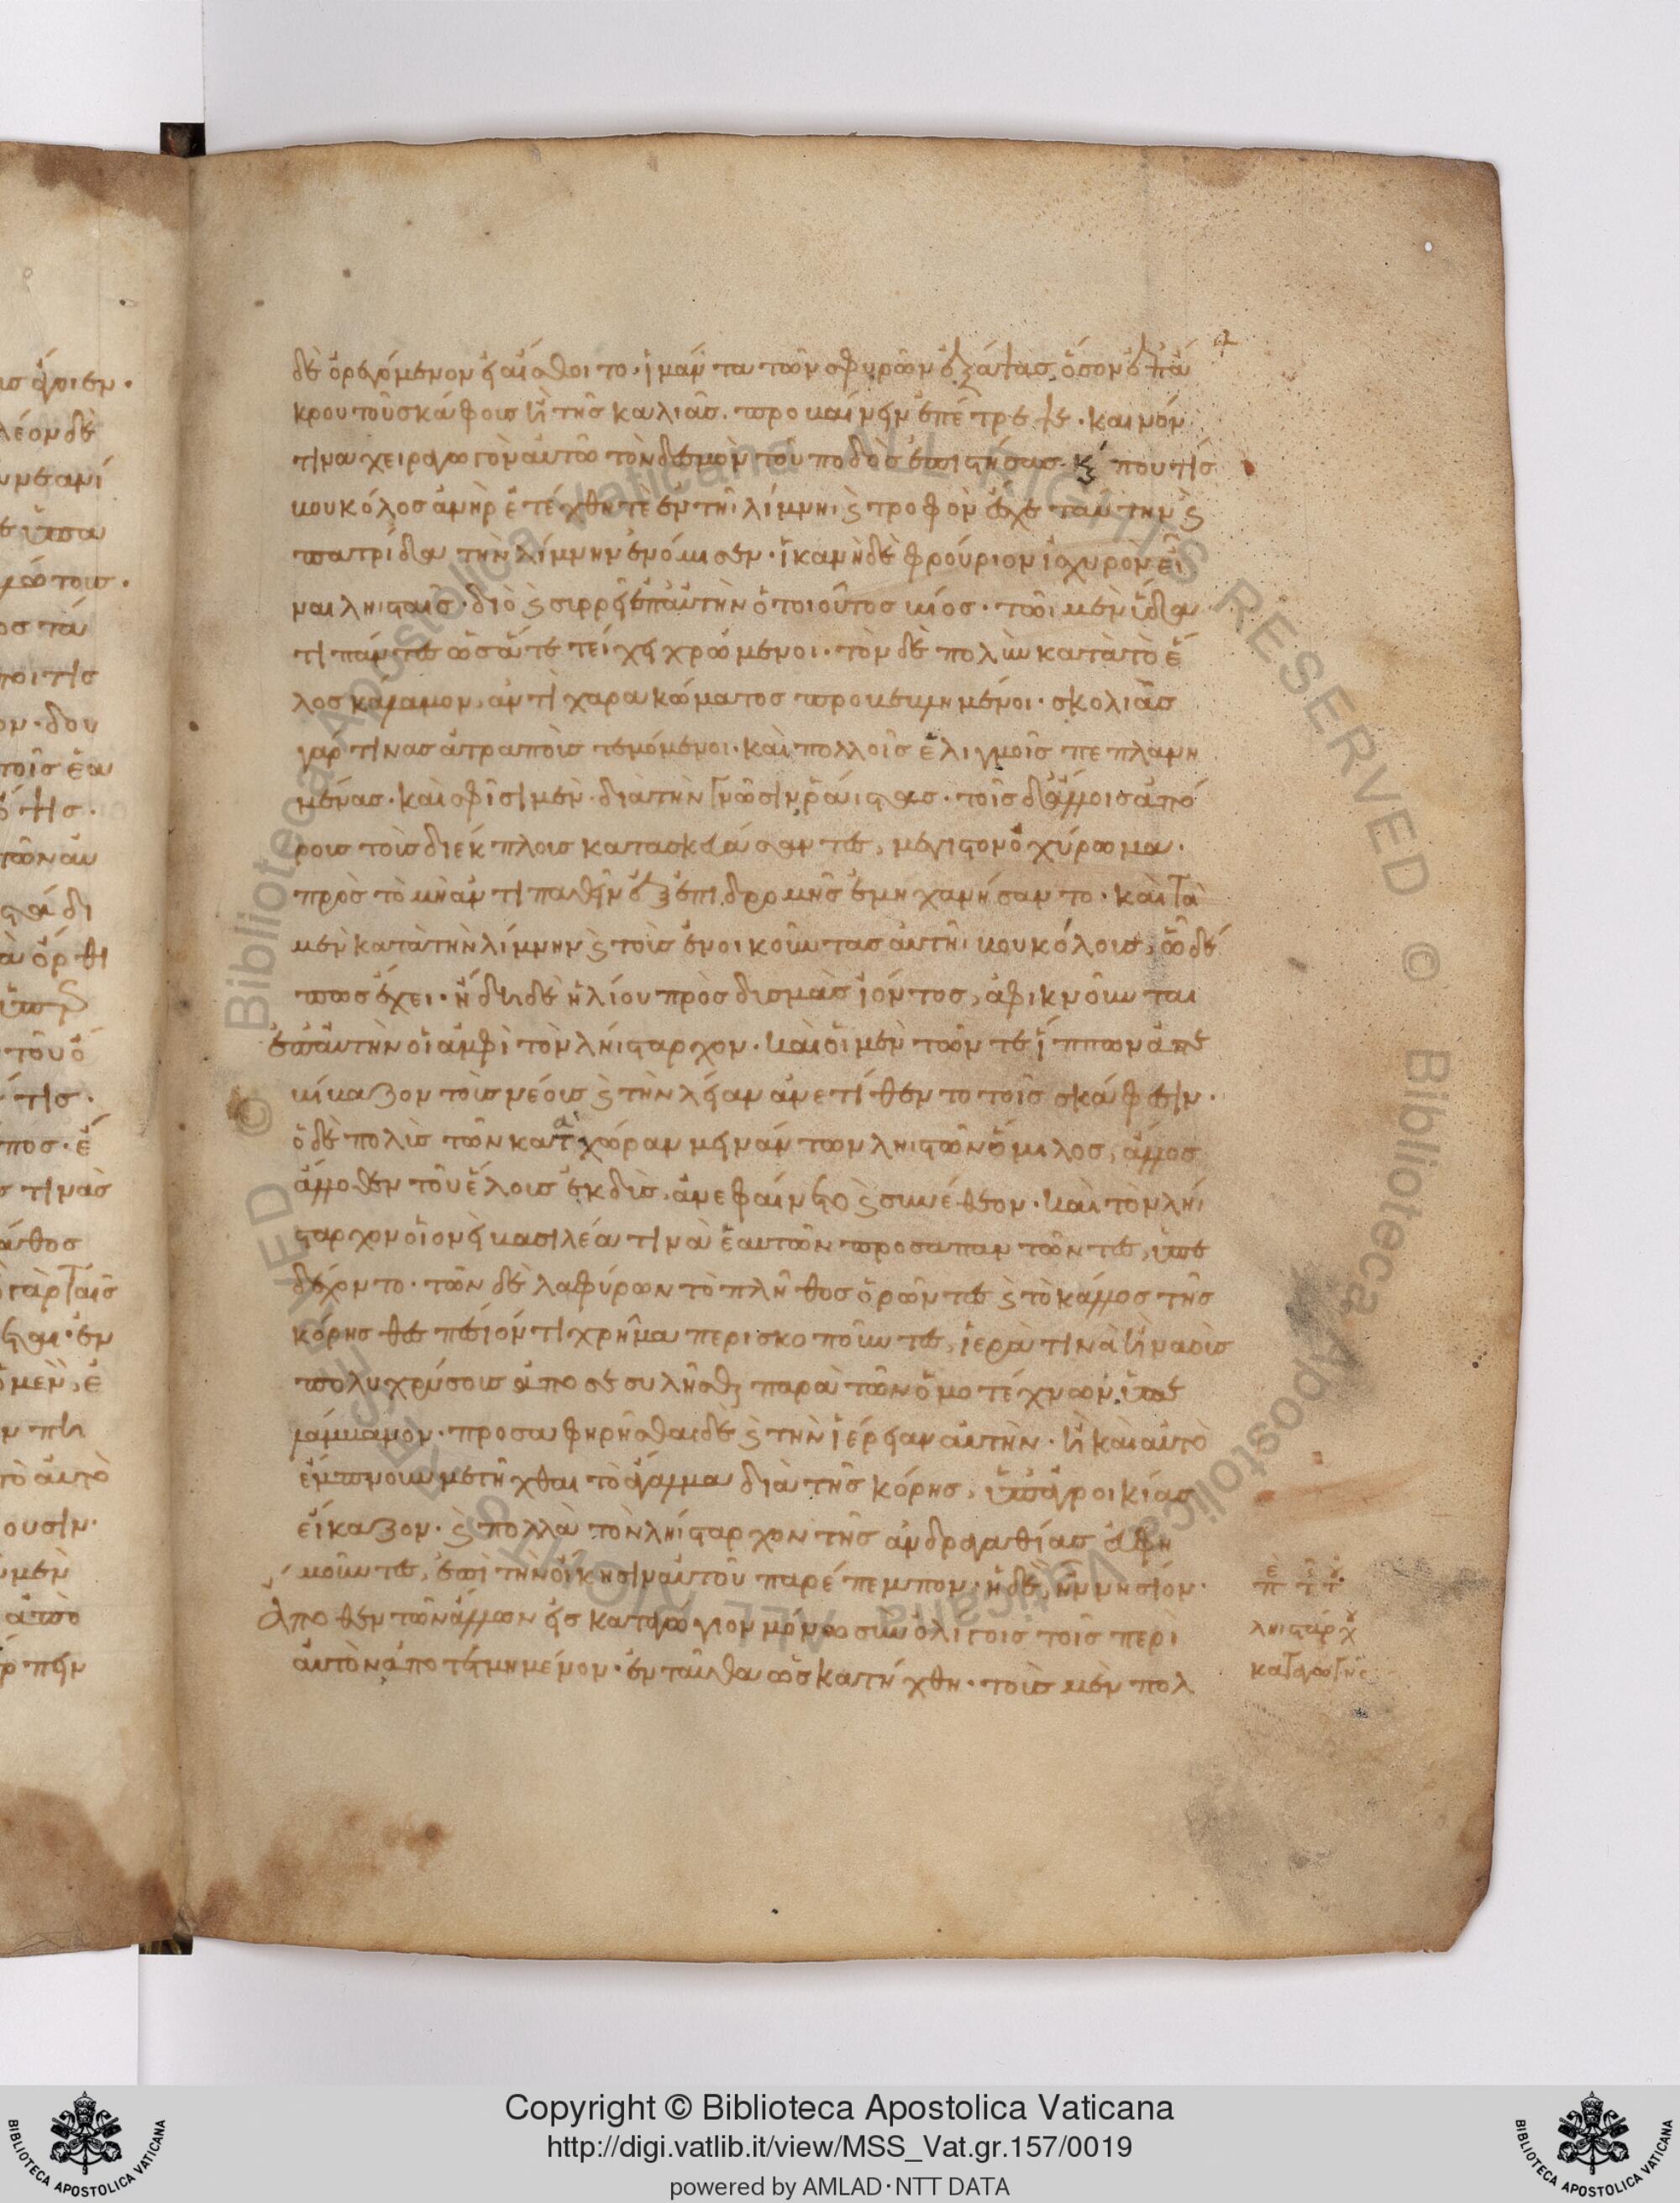 δὲ ὀρεγόμενον εἰ αἴσθοιτο· ἱμάντα τῶν σφυρῶν ἐξάψας, ὅσον ἐπ' ἄ
κρου τοῦ σκάφους ἢ τῆς καλιᾶς, προβαίνειν ἐπέτρεψε· καινόν
τινα χειραγωγὸν αὐτῶ τὸν δεσμὸν τοῦ ποδὸς ἐπιστήσας. καί που τίς
βουκόλος ἀνὴρ ἐτέχθη τε ἐν τῆι λίμνηι ϗ τροφὸν ἔχε ταύτην ϗ
πατρίδα τὴν λίμνην ἐνόμισεν· ἱκανὴ δὲ φρούριον ἰσχυρὸν εἶ
ναι λῃσταῖς· διὸ ϗ συρρεῖ ἐπ' αὐτὴν ὁ τοιοῦτος βίος· τῶι μὲν ὕδα
τι πάντες ὥσπερ τείχει χρώμενοι· τὸν δὲ πολὺν κατὰ τὸ ἕ
λος κάλαμον, ἀντὶ χαρακώματος προβεβλημένοι· σκολιὰς
γάρ τινας ἀτραποὺς τεμόμενοι· καὶ πολλοῖς ἑλιγμοῖς πεπλανη
μένας· καὶ σφίσι μὲν διὰ τὴν γνῶσιν ῥάιστας· τοῖς δ' ἄλλοις ἀπό
ρους τοὺς διέκπλους κατασκευάσαντες, μέγιστον ὀχύρωμα·
πρὸς τὸ μὴ ἄν τι παθεῖν ἐξ ἐπιδρομῆς ἐμηχανήσαντο· καὶ τὰ
μὲν κατὰ τὴν λίμνην ϗ τοὺς ἐνοικοῦντας αὐτῆι βουκόλους, ὧδέ
πως ἔχει· ἤδη δὲ ἡλίου πρὸς δυσμὰς ἰόντος, ἀφικνοῦνται
ἐπ' αὐτὴν οἱ ἀμφὶ τὸν λήισταρχον· καὶ οἱ μὲν τῶν τε ἵππων ἀπε
βίβαζον τοὺς νέους ϗ τὴν λείαν ἀνετίθεντο τοῖς σκάφεσιν·
ὁ δὲ πολὺς τῶν κατὰ χώραν μεινάντων ληιστῶν ὅμιλος, ἄλλος
ἄλλοθεν τοῦ ἕλους ἐκδὺς, ἀνεφαίνετο ϗ συνέθεον· καὶ τὸν λήι
σταρχον οἱονεὶ βασιλέα τινὰ ἑαυτῶν προσαπαντῶντες, ὑπε
δέχοντο· τῶν δὲ λαφύρων τὸ πλῆθος ὁρῶντες ϗ τὸ κάλλος τῆς
κόρης θεσπέσιόν τι χρῆμα περισκοποῦντες, ἱερά τινα ἢ ναοὺς
πολυχρύσους ἀποσεσυλῆσθαι παρὰ τῶν ὁμοτέχνων, ὑπε
λάμβανον· προσαφηρῆσθαι δὲ ϗ τὴν ἱέρειαν αὐτὴν· ἢ καὶ αὐτὸ
ἔμπνουν μετῆχθαι τὸ ἄγαλμα διὰ τῆς κόρης, ὑπ' ἀγροικίας
εἴκαζον· ϗ πολλὰ τὸν λήισταρχον τῆς ἀνδραγαθίας εὐφη
μοῦντες, ἐπὶ τὴν οἴκησιν αὐτοῦ παρέπεμπον· ἡ δὲ, ἦν νησίον·
ἄποθεν τῶν ἄλλων εἰς καταγώγιον μόνω σὺν ὀλίγοις τοῖς περὶ
αὐτὸν ἀποτετμημένον· ἐνταῦθα ὡς κατήχθη· τοὺς μὲν πολ
ληιστάρχου
καταγωγῆς